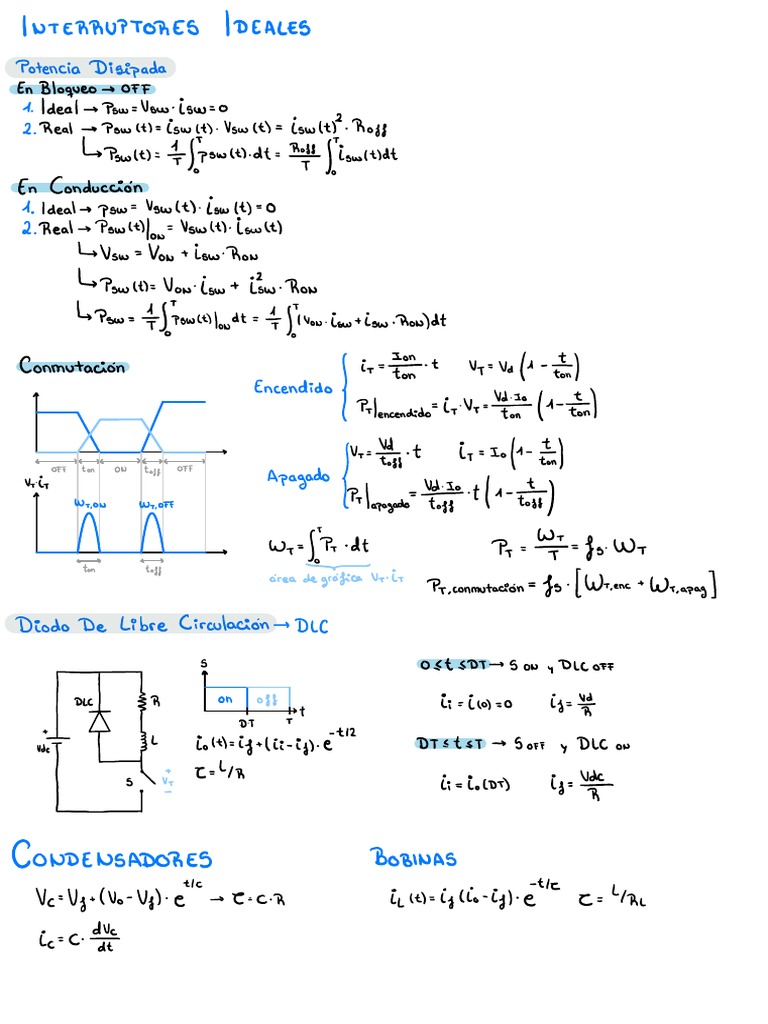 INTERRUPTORES IDEALES
Potencia Disipada
En Bloqueo → OFF
1. Ideal → Psw = Vsw · isw = 0
2. Real → Psw (t) = isw (t) · Vsw (t) = isw (t)² · Roff
↳ Psw (t) = 1/T ∫₀ᵀ psw (t) · dt = Roff/T ∫₀ᵀ isw (t) dt
En Conducción
1. Ideal → psw = Vsw (t) · isw (t) = 0
2. Real → Psw (t)|ON = Vsw (t) · isw (t)
↳ Vsw = VON + isw · RON
↳ Psw (t) = VON · isw + i²sw · RON
↳ Psw = 1/T ∫₀ᵀ psw (t)|ON dt = 1/T ∫₀ᵀ (VON · isw + isw · RON) dt
Conmutación
OFF ton ON toff OFF
VT·iT
WT,ON WT,OFF
ton toff
Encendido
iT = Ion/ton · t VT = Vd (1 - t/ton)
PT|encendido = iT · VT = Vd·Io/ton (1 - t/ton)
Apagado
VT = Vd/toff · t iT = Io (1 - t/ton)
PT|apagado = Vd·Io/toff · t (1 - t/toff)
WT = ∫₀ᵀ PT · dt PT = WT/T = fs · WT
área de gráfica VT·iT
PT,conmutación = fs · [WT,enc + WT,apag]
Diodo De Libre Circulación → DLC
DLC R L Vdc S + VT −
S on off DT T t
io (t) = if + (ii - if) · e^-t/2
τ = L/R
0 ≤ t ≤ DT → S ON y DLC OFF
ii = i(0) = 0 if = Vd/R
DT ≤ t ≤ T → S OFF y DLC ON
ii = io (DT) if = Vdc/R
CONDENSADORES
Vc = Vf + (Vo - Vf) · e^t/c → τ = C · R
ic = C · dVc/dt
BOBINAS
iL (t) = if (io - if) · e^-t/τ τ = L/RL